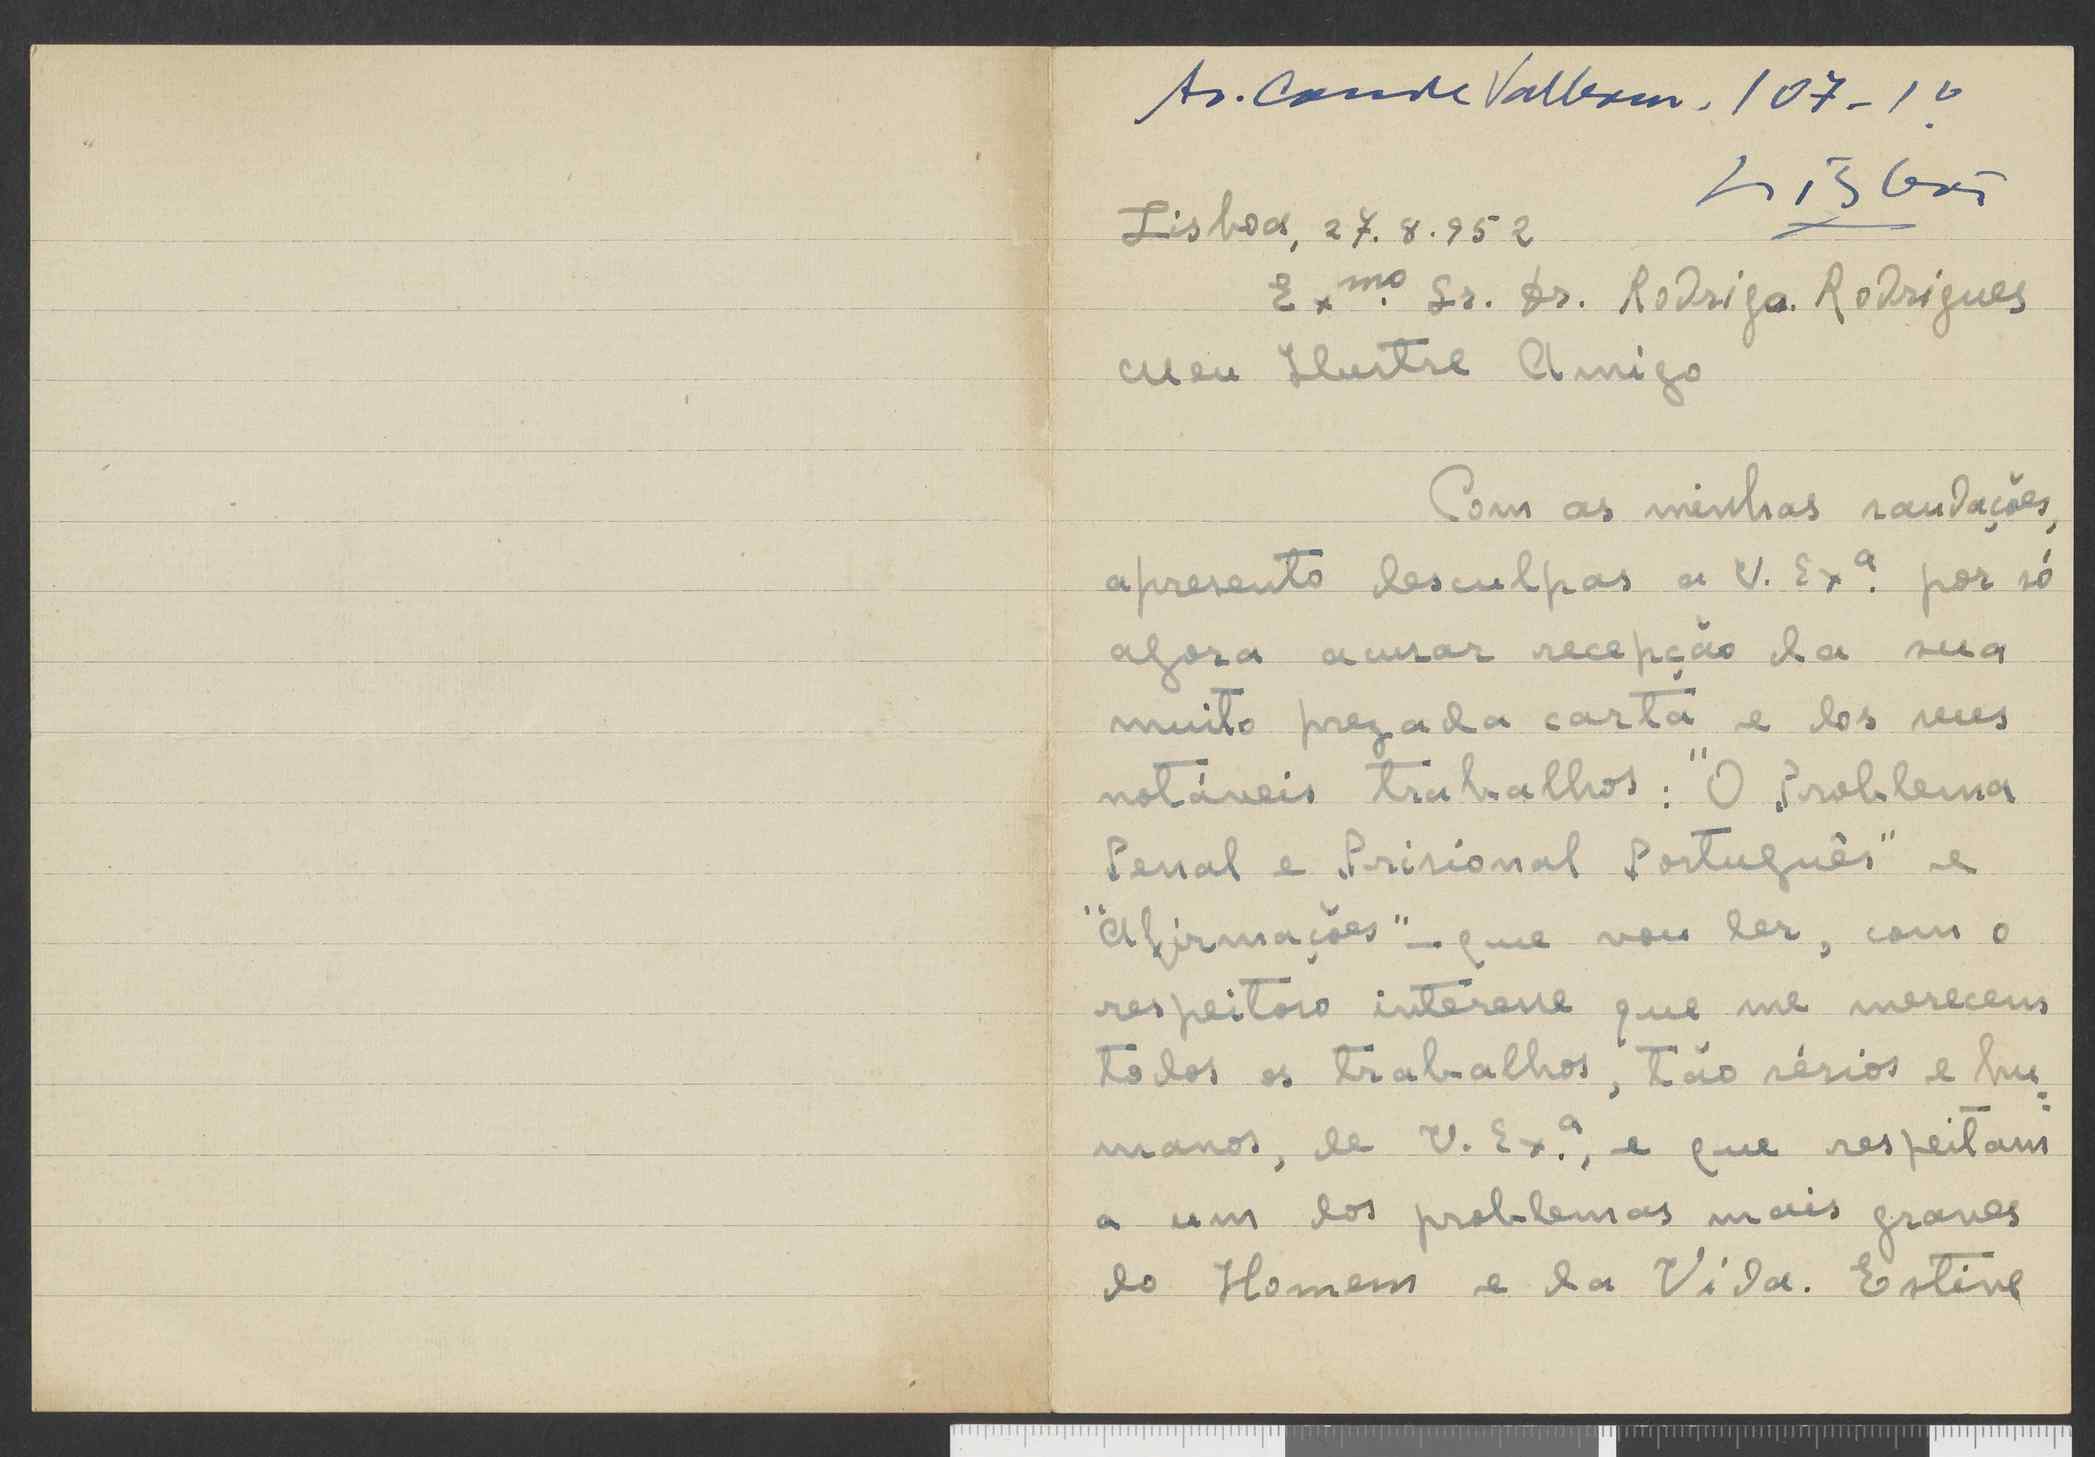 Av. Conde Valbom. 107-1º
Lisboa
Lisboa, 27.8.952
Exmº Sr. Dr. Rodrigo Rodrigues
Meu Ilustre Amigo
Com as minhas saudações,
apresento desculpas a V. Exª. por só
agora acusar recepção da sua
muito prezada carta e dos seus
notáveis trabalhos: "O Problema
Penal e Prisional Português" e
"Afirmações" - que vou ler, com o
respeitoso interesse que me merecem
todos os trabalhos, tão sérios e hu-
manos, de V. Exª., e que respeitam
a um dos problemas mais graves
do Homem e da Vida. Estive